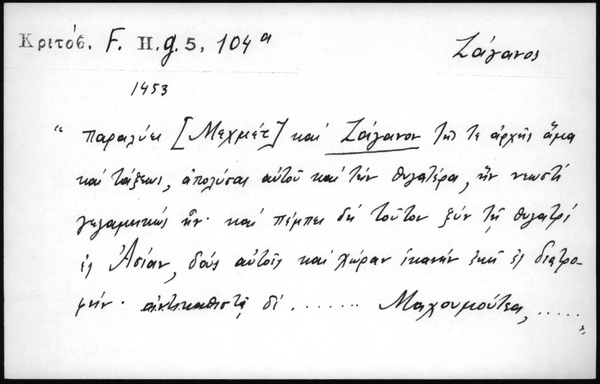 Κριτόβ. F. H.g.5, 104α
Ζάγανος
1453
“ παραλύει [Μεχμέτ] καὶ Ζάγανον τῆς τε ἀρχῆς ἅμα
καὶ τάξεως, ἀπολύσας αὐτοῦ καὶ τὴν θυγατέρα, ἣν νεωστὶ
γεγαμηκὼς ἦν· καὶ πέμπει δὴ τοῦτον ξὺν τῇ θυγατρὶ
ἐς Ἀσίαν, δοὺς αὐτοῖς καὶ χώραν ἱκανὴν ἐκεῖ ἐς διατρο-
φήν· ἀντικαθιστᾷ δὲ ....... Μαχουμούτεα, ..... „